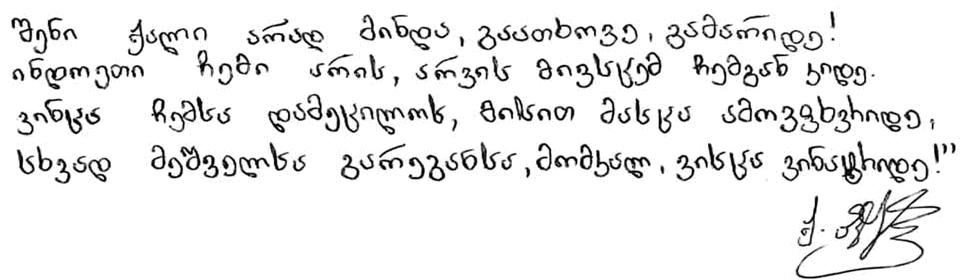 შენი ქალი არად მინდა, გაათხოვე, გამარიდე!
ინდოეთი ჩემი არის, არვის მივსცემ ჩემგან კიდე.
ვინცა ჩემსა დამეცილოს, მისით მასცა ამოვფხვრიდე,
სხვად მეშველსა გარეგანსა, მომკალ, ვისცა ვინატრიდე!"